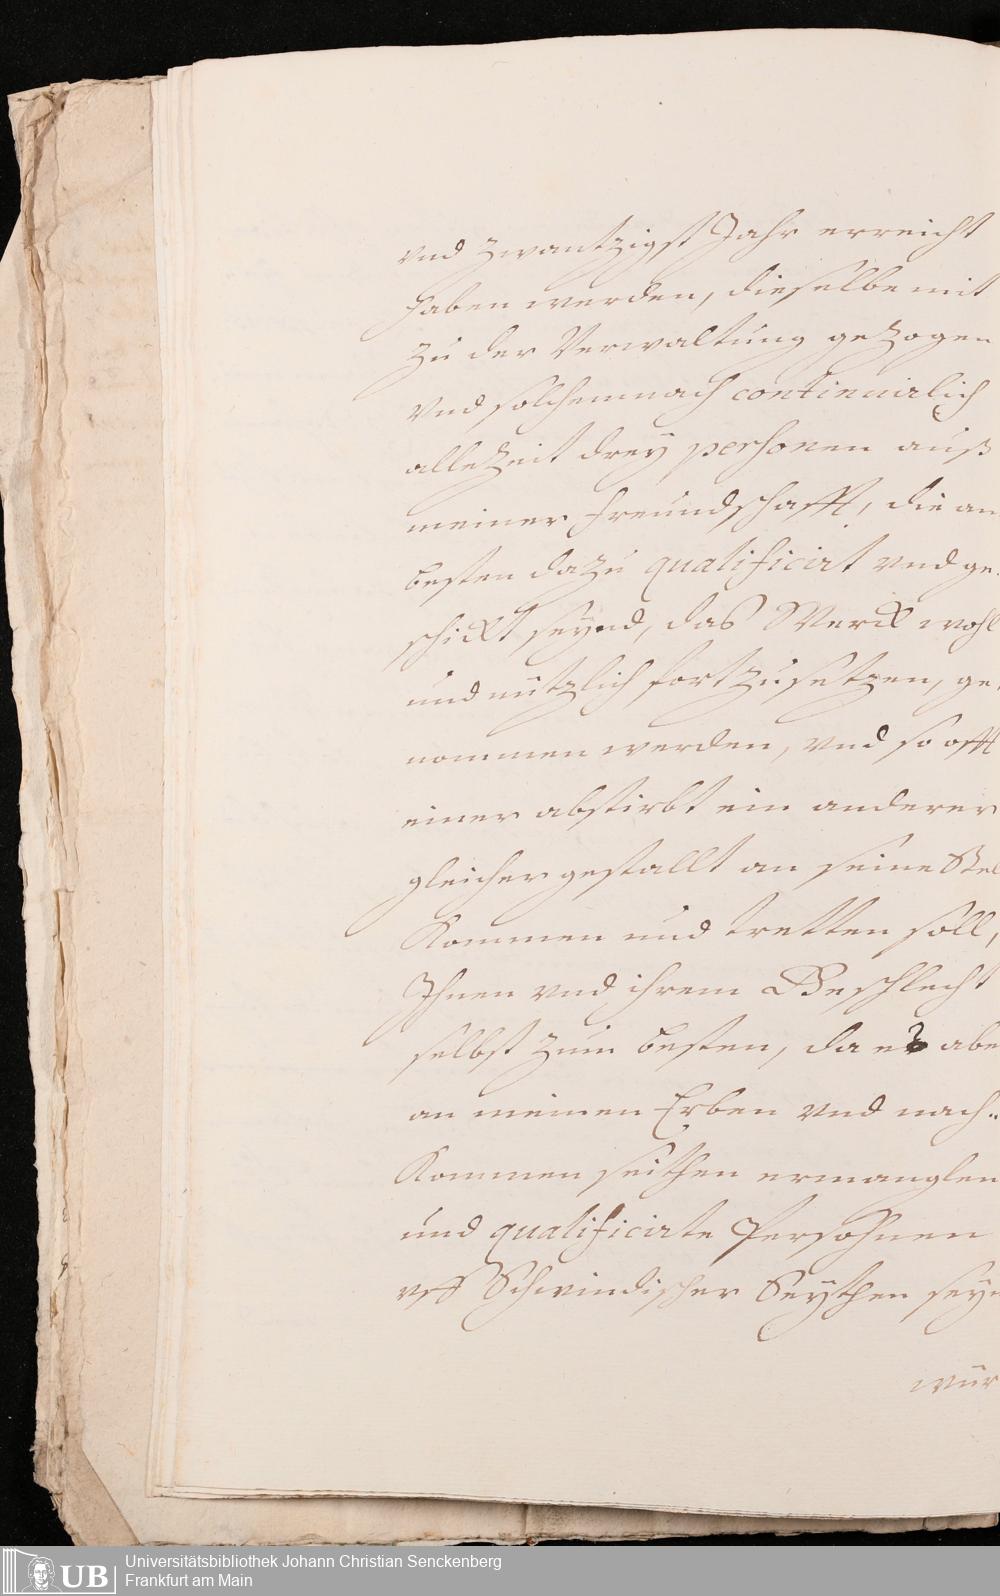 vnd zwantzigst Jahr erreicht
haben werden, dieselbe mit
zu der Verwaltung gezogen
vnd solchemnach continuirlich
allezeit drey personen auß
meiner freundschafft, die am
besten dazu qualificirt vnd ge-
schickt seynd, das Werck wohl
und nützlich fortzusetzen, ge-
nommen werden, vnd so offt
einer abstirbt ein anderer
gleichergestallt an seine Stel
kommen und tretten soll,
Ihnen vnd ihrem Geschlecht
selbst zum besten, da es abe
an meinen Erben vnd nach-
kommen seithen ermanglen
und qualificirte Persohnen
vff Schwindischer Seythen sey
wür
Universitätsbibliothek Johann Christian Senckenberg
Frankfurt am Main
UB